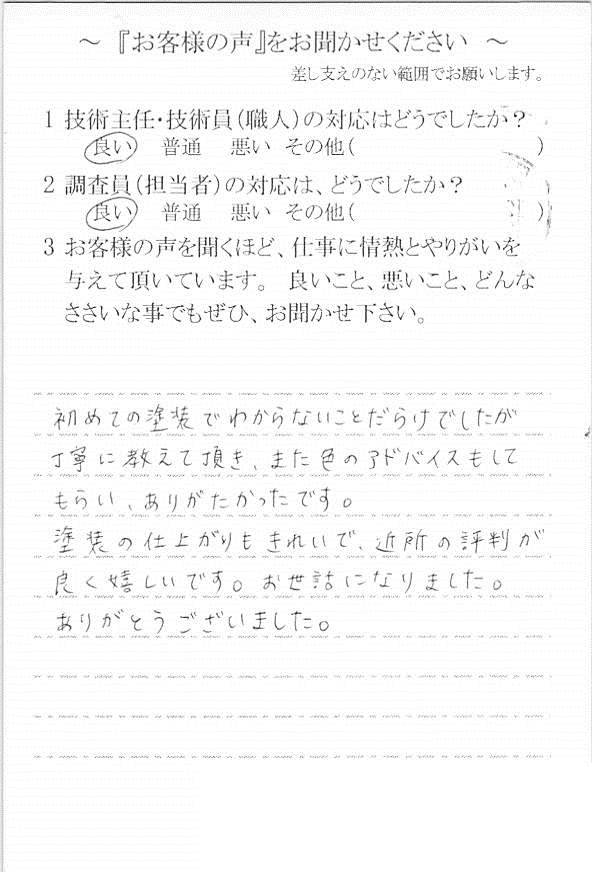 ～ 『お客様の声』をお聞かせください ～
差し支えのない範囲でお願いします。
1 技術主任・技術員(職人)の対応はどうでしたか？
良い 普通 悪い その他( )
2 調査員(担当者)の対応は、どうでしたか？
良い 普通 悪い その他( )
3 お客様の声を聞くほど、仕事に情熱とやりがいを
与えて頂いています。 良いこと、悪いこと、どんな
ささいな事でもぜひ、お聞かせ下さい。
初めての塗装でわからないことだらけでしたが
丁寧に教えて頂き、また色のアドバイスもして
もらい、ありがたかったです。
塗装の仕上がりもきれいで、近所の評判が
良く嬉しいです。お世話になりました。
ありがとうございました。